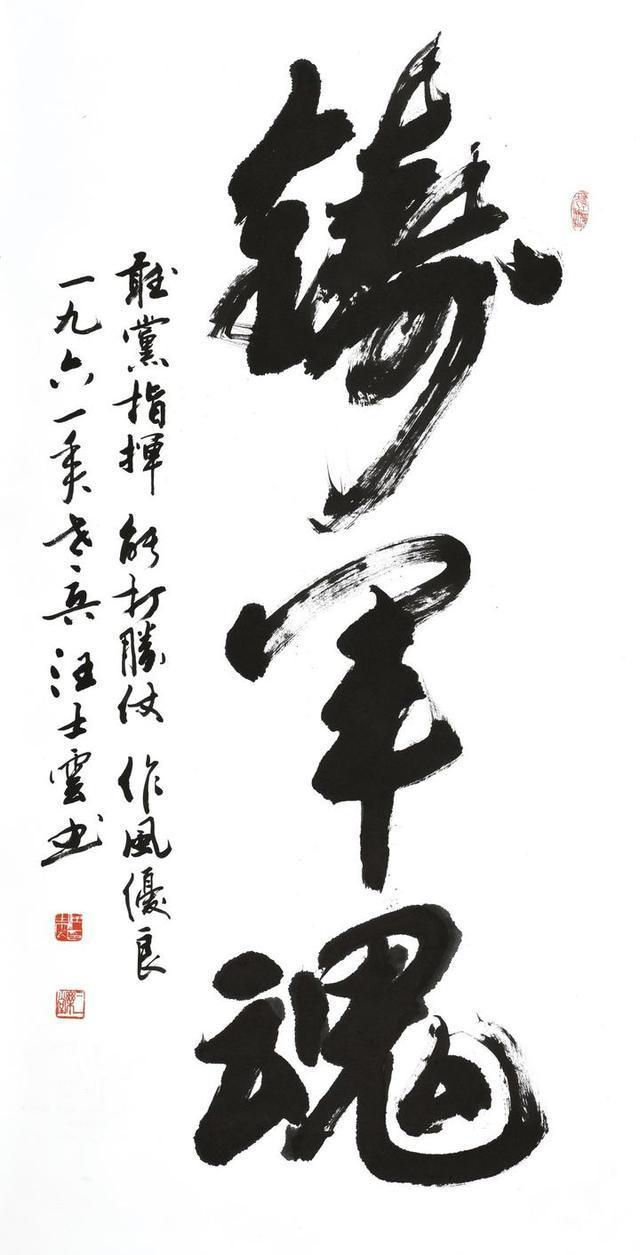 鑄軍魂
聽黨指揮 能打勝仗 作風優良
一九六一年老兵汪士雲书